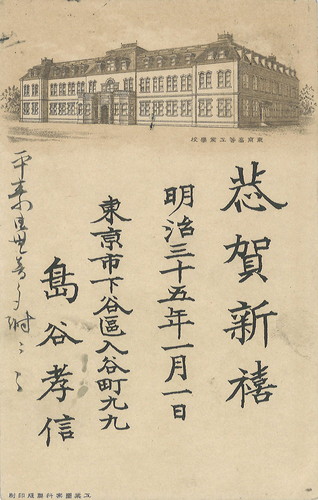 東京高等工業學校
恭賀新禧
明治三十五年一月一日
東京市下谷區入谷町九九
島谷孝信
工業圖案科製版印刷